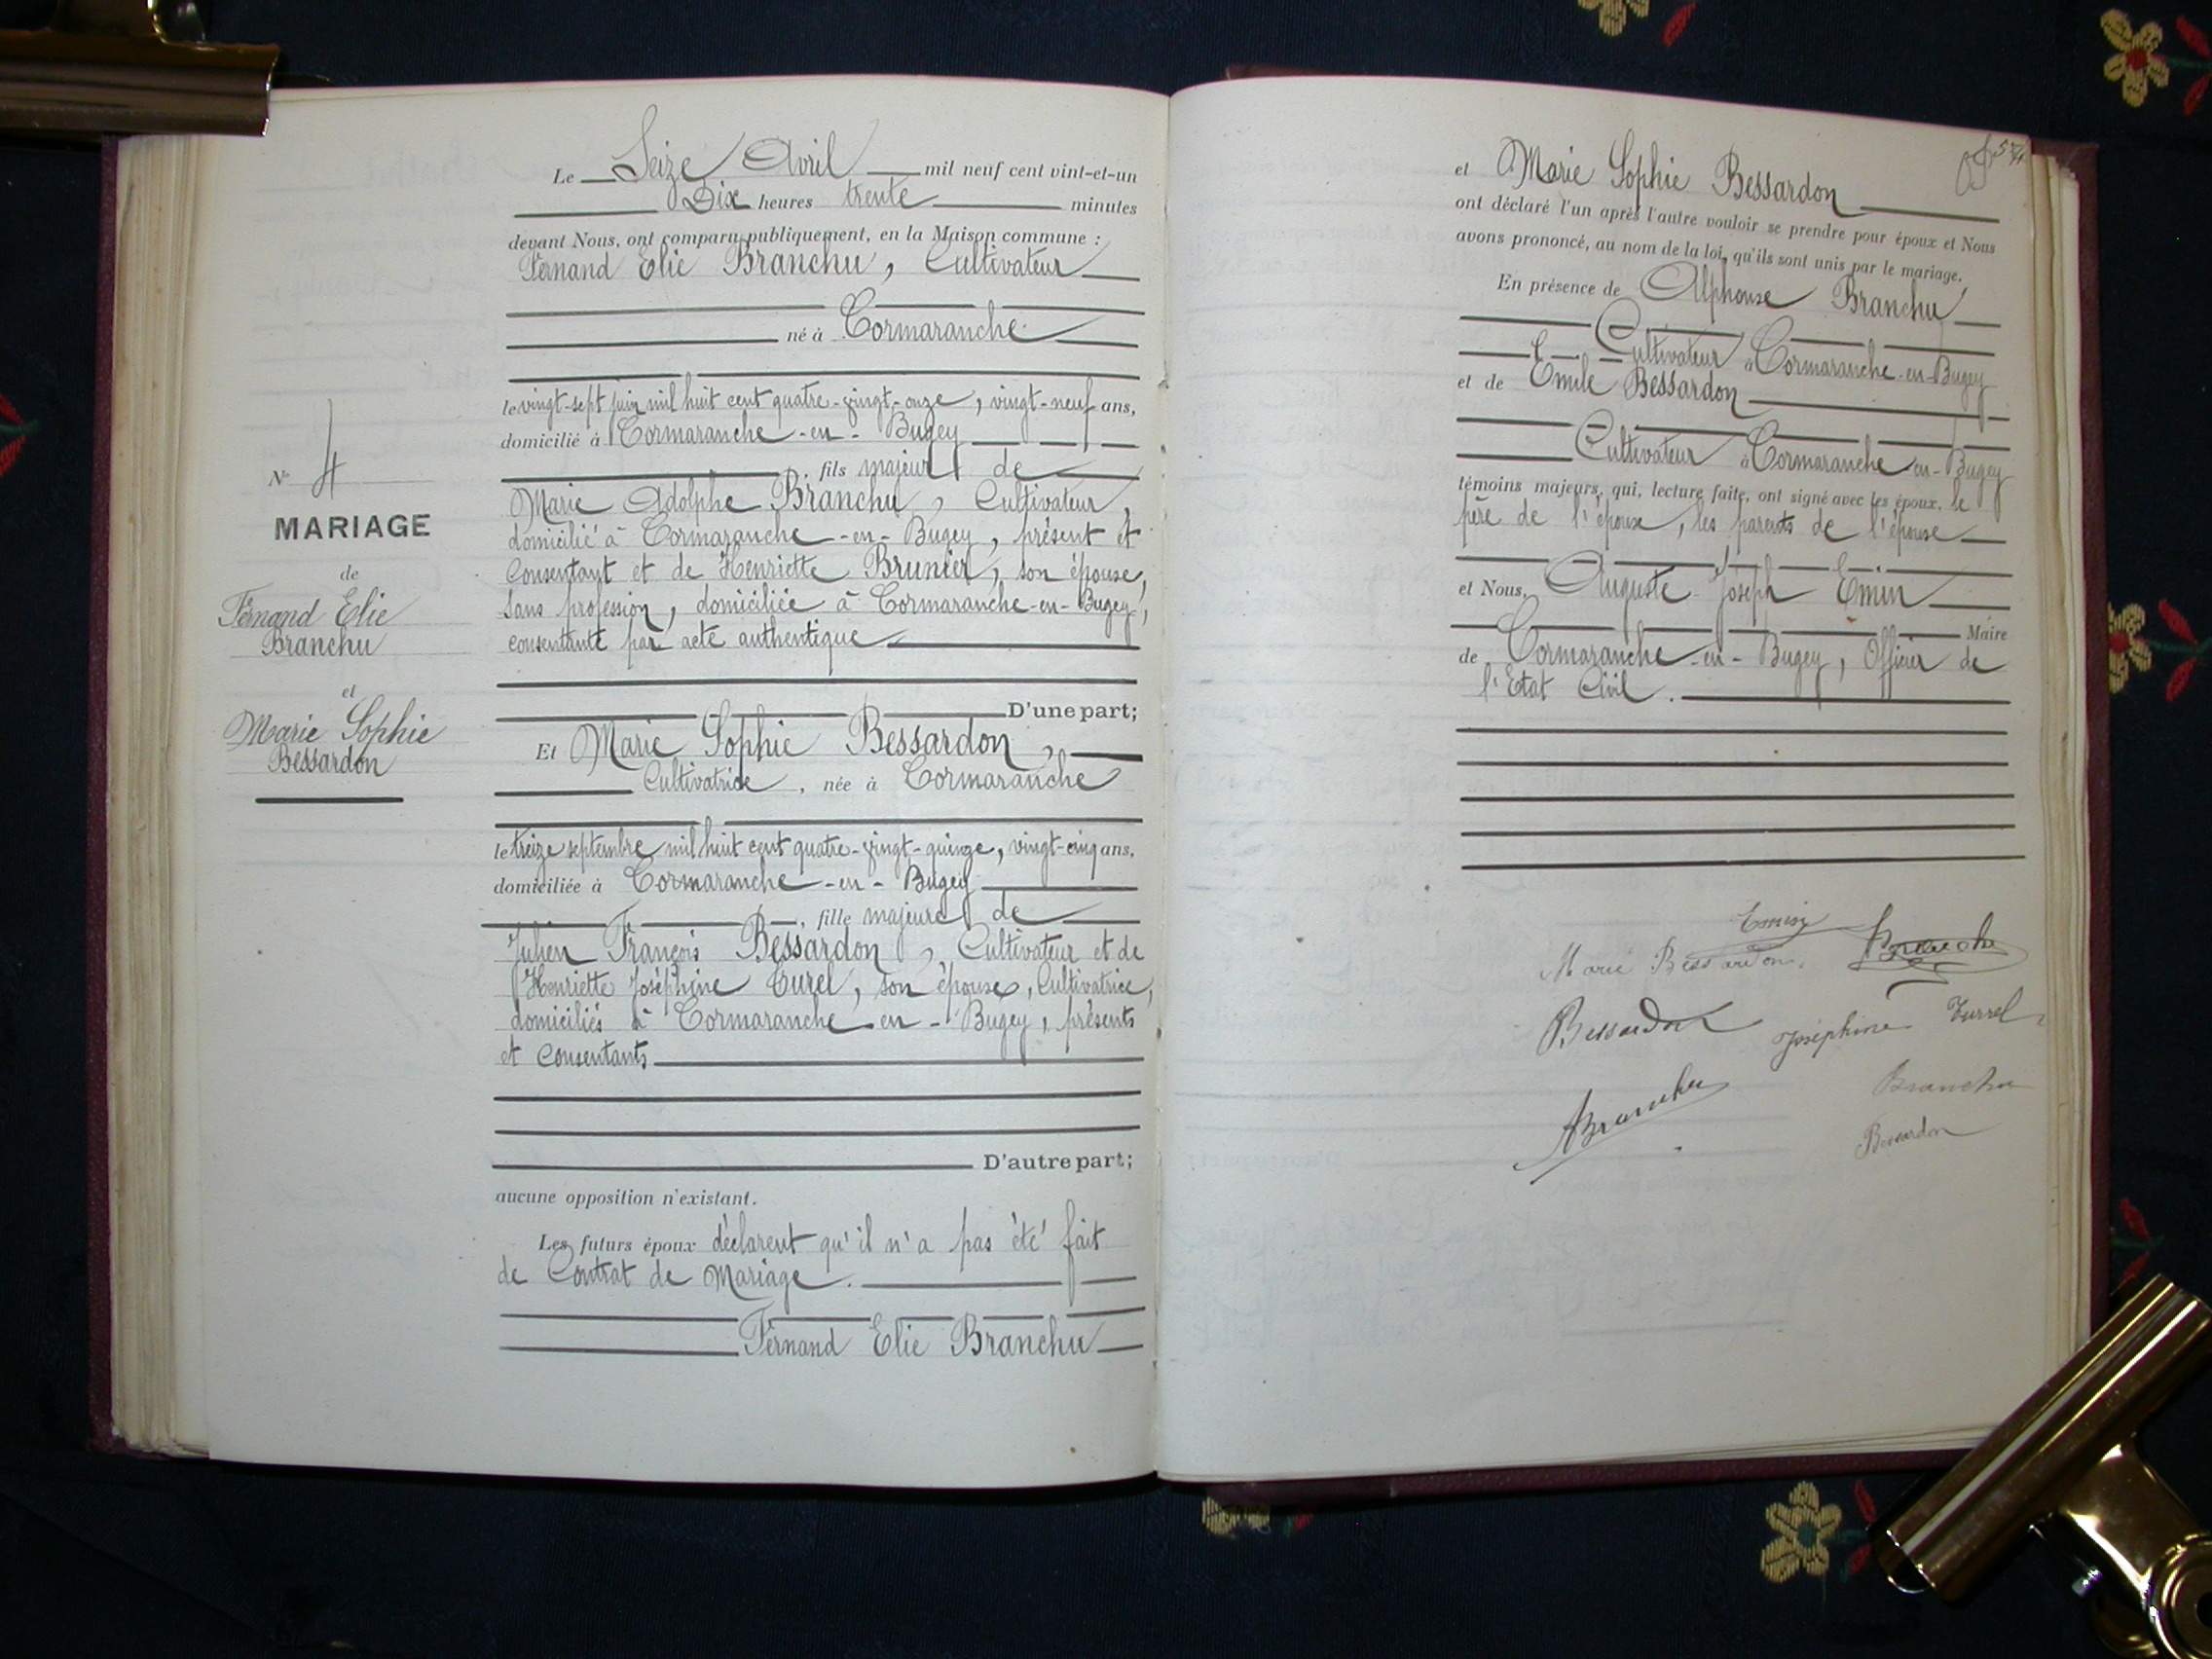 N° 4
MARIAGE
de
Fernand Elie
Branchu
et
Marie Sophie
Bessardon
Le Seize Avril mil neuf cent vint-et-un
Dix heures trente minutes
devant Nous, ont comparu publiquement, en la Maison commune :
Fernand Elie Branchu, Cultivateur
né à Cormaranche
le vingt-sept juin mil huit cent quatre-vingt-onze, vingt-neuf ans,
domicilié à Cormaranche-en-Bugey
, fils majeur de
Marie Adolphe Branchu, Cultivateur,
domicilié à Cormaranche-en-Bugey, présent et
consentant et de Henriette Brunier, son épouse,
sans profession, domiciliée à Cormaranche-en-Bugey,
consentante par acte authentique
D'une part;
Et Marie Sophie Bessardon,
Cultivatrice, née à Cormaranche
le treize septembre mil huit cent quatre-vingt-quinze, vingt-cinq ans,
domiciliée à Cormaranche-en-Bugey
, fille majeure de
Julien François Bessardon, Cultivateur et de
Henriette Joséphine Turel, son épouse, Cultivatrice,
domiciliés à Cormaranche-en-Bugey, présents
et consentants
D'autre part;
aucune opposition n'existant.
Les futurs époux déclarent qu'il n'a pas été fait
de Contrat de Mariage.
Fernand Elie Branchu
et Marie Sophie Bessardon
ont déclaré l'un après l'autre vouloir se prendre pour époux et Nous
avons prononcé, au nom de la loi, qu'ils sont unis par le mariage.
En présence de Alphonse Branchu
Cultivateur à Cormaranche-en-Bugey
et de Emile Bessardon
Cultivateur à Cormaranche-en-Bugey
témoins majeurs, qui, lecture faite, ont signé avec les époux, le
père de l'époux, les parents de l'épouse
et Nous, Auguste Joseph Emin
Maire
de Cormaranche-en-Bugey, Officier de
l'Etat Civil.
Emin
Marie Bessardon.
Bessardon Joséphine Turrel
Branchu Branchu
Bessardon